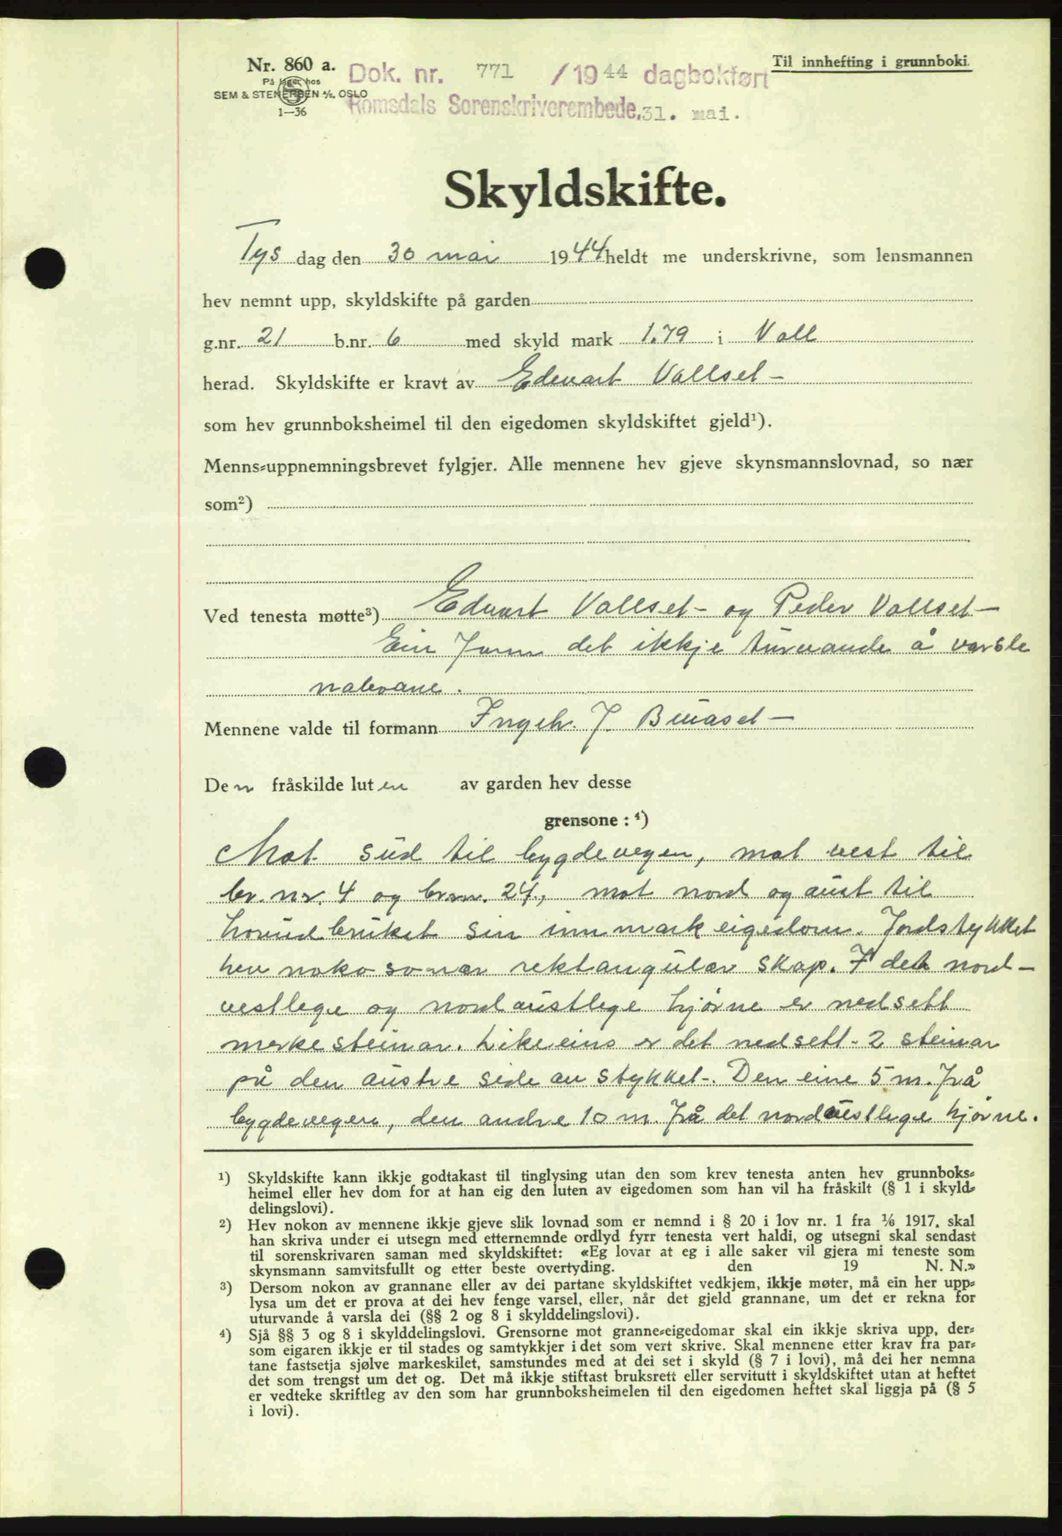 Nr. 860 a.
På lager hos
SEM & STENERSEN A/S. OSLO
1—36
Dok. nr. 771 /1944 dagbokført
Romsdals Sorenskriverembede, 31. mai.
Til innhefting i grunnboki.
Skyldskifte.
Tys dag den 30 mai 1944 heldt me underskrivne, som lensmannen
hev nemnt upp, skyldskifte på garden
g.nr. 21 b.nr. 6 med skyld mark 1.79 i Voll
herad. Skyldskifte er kravt av Edvart Vollset
som hev grunnboksheimel til den eigedomen skyldskiftet gjeld¹).
Menns-uppnemningsbrevet fylgjer. Alle mennene hev gjeve skynsmannslovnad, so nær
som²)
Ved tenesta møtte³) Edvart Vollset og Peder Vollset
Ein det ikkje turvande å varsle
naboane.
Mennene valde til formann J.
Den fråskilde luten av garden hev desse
grensone : ⁴)
Mot sud til bygdevegen, mot vest til
br. nr. 4 og br.nr. 24, mot nord og aust til
hovudbruket sin innmarkeigedom. Jordstykket
hev noko so nær rektangulær skap. I det nord-
vestlege og nordaustlege hjørne er nedsett
merkesteinar. Likeeins er det nedsett 2 steinar
på den austre side av stykket. Den eine 5 m. frå
bygdevegen, den andre 10 m. frå det nordaustlege hjørne.
¹) Skyldskifte kann ikkje godtakast til tinglysing utan den som krev tenesta anten hev grunnboks-
heimel eller hev dom for at han eig den luten av eigedomen som han vil ha fråskilt (§ 1 i skyld-
delingslovi).
²) Hev nokon av mennene ikkje gjeve slik lovnad som er nemnd i § 20 i lov nr. 1 fra 1/6 1917, skal
han skriva under ei utsegn med etternemnde ordlyd fyrr tenesta vert haldi, og utsegni skal sendast
til sorenskrivaren saman med skyldskiftet: «Eg lovar at eg i alle saker vil gjera mi teneste som
skynsmann samvitsfullt og etter beste overtyding. den 19 N. N.»
³) Dersom nokon av grannane eller av dei partane skyldskiftet vedkjem, ikkje møter, må ein her upp-
lysa um det er prova at dei hev fenge varsel, eller, når det gjeld grannane, um det er rekna for
uturvande å varsla dei (§§ 2 og 8 i skylddelingslovi).
⁴) Sjå §§ 3 og 8 i skylddelingslovi. Grensorne mot granne-eigedomar skal ein ikkje skriva upp, der-
som eigaren ikkje er til stades og samtykkjer i det som vert skrive. Skal mennene etter krav fra par-
tane fastsetja sjølve markeskilet, samstundes med at dei set i skyld (§ 7 i lovi), må dei her nemna
det som trengst um det og. Det må ikkje stiftast bruksrett eller servitutt i skyldskiftet utan at heftet
er vedteke skriftleg av den som har grunnboksheimelen til den eigedomen heftet skal liggja på (§ 5
i lovi).